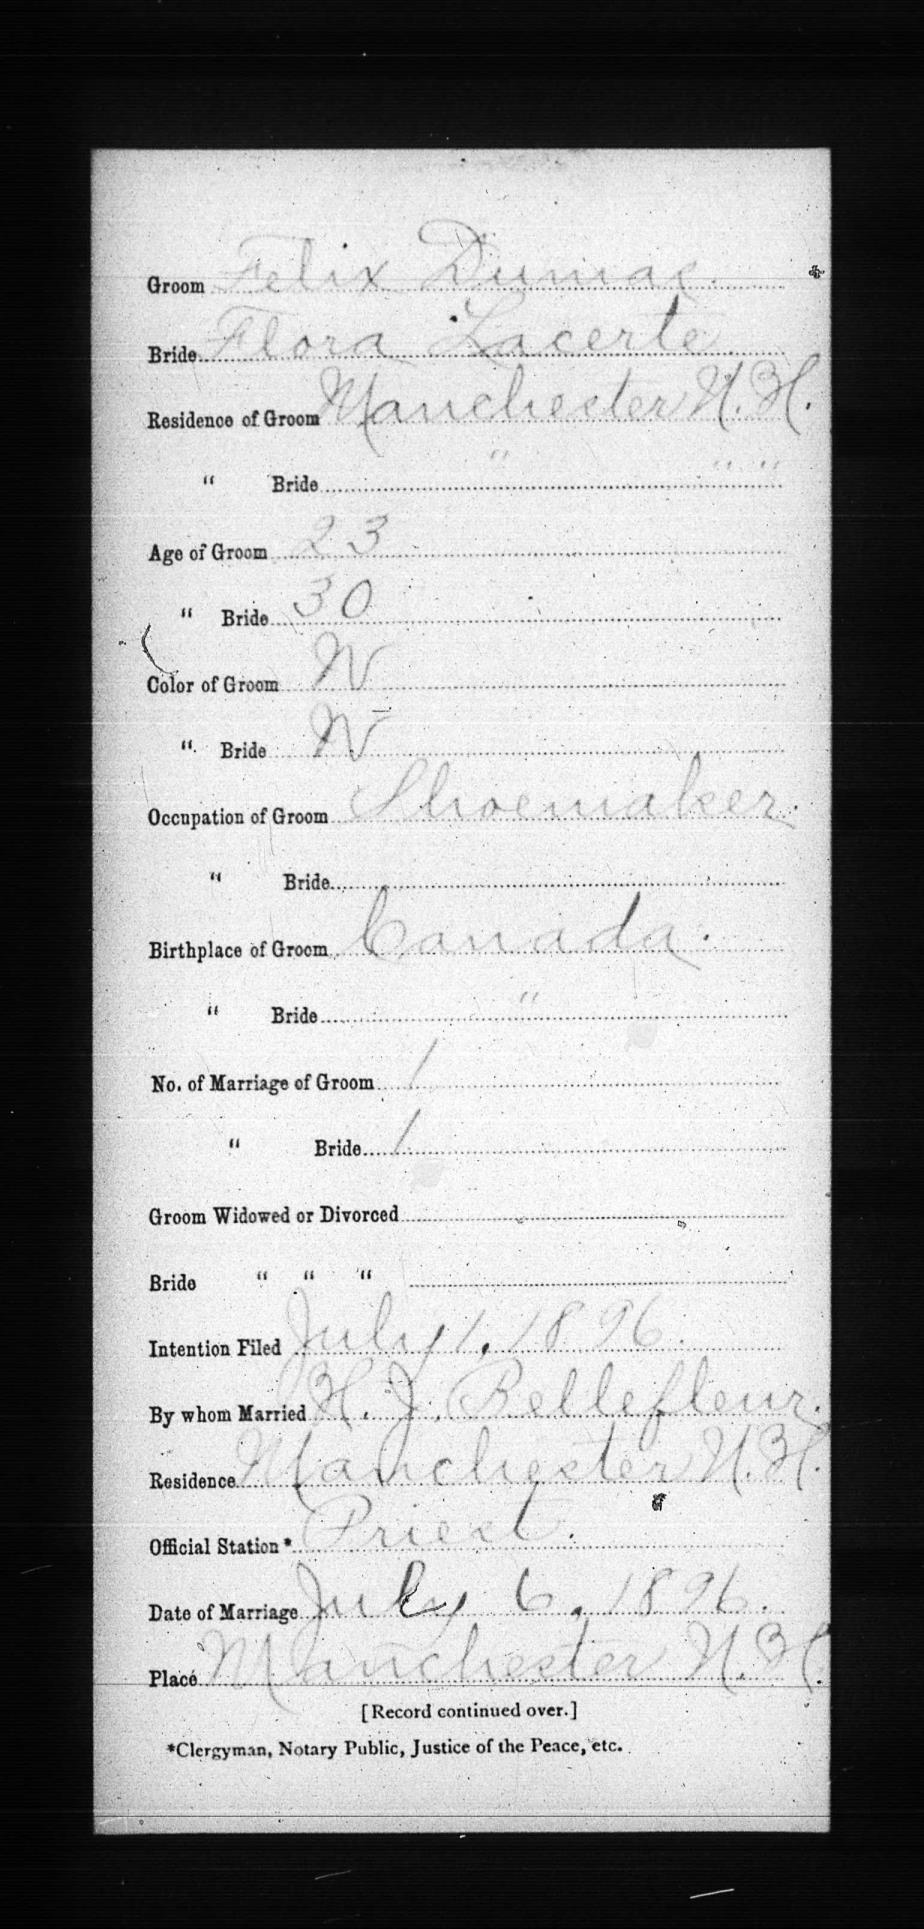 Groom Felix Dumas.
Bride Flora Lacerte
Residence of Groom Manchester N.H.
" Bride " " "
Age of Groom 23
" Bride 30
Color of Groom W
" Bride W
Occupation of Groom Shoemaker.
" Bride
Birthplace of Groom Canada.
" Bride "
No. of Marriage of Groom 1
" Bride 1
Groom Widowed or Divorced
Bride " " "
Intention Filed July 1, 1896.
By whom Married H. J. Bellefleur.
Residence Manchester N.H.
Official Station* Priest.
Date of Marriage July 6, 1896.
Place Manchester N.H.
[Record continued over.]
*Clergyman, Notary Public, Justice of the Peace, etc.